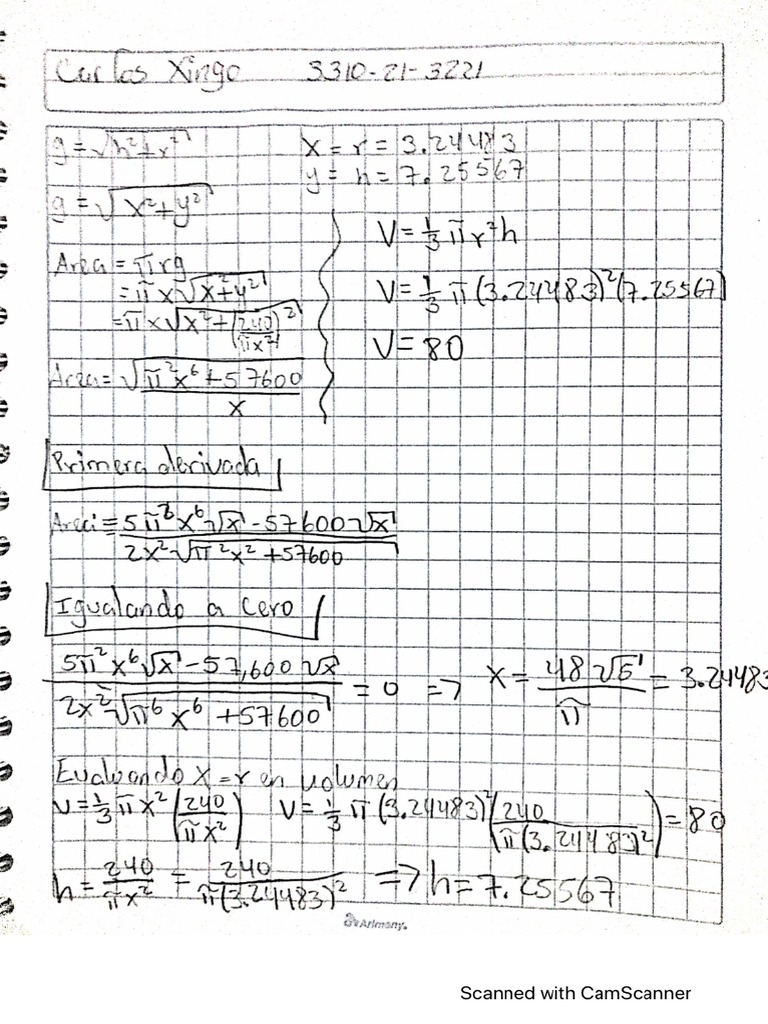 Carlos Xingo 3310-21-3221
g = √h²+r²
g = √x²+y²
Area = πrg
= πx√x²+y²
= πx√x²+(240/πx²)²
Area = √π²x⁶+57600 / x
x = r = 3.24483
y = h = 7.25567
V = 1/3 πr²h
V = 1/3 π(3.24483)²(7.25567)
V = 80
Primera derivada
Area = 5π²x⁶√x - 57600√x / 2x²√π²x²+57600
Igualando a cero
5π²x⁶√x - 57,600√x / 2x²√π⁶x⁶+57600 = 0 => x = 48√5 / π = 3.24483
Evaluando x=r en volumen
V = 1/3 πx²(240/πx²) V = 1/3 π(3.24483)²(240/π(3.24483)²) = 80
h = 240/πx² = 240/π(3.24483)² => h = 7.25567
Arimany.
Scanned with CamScanner